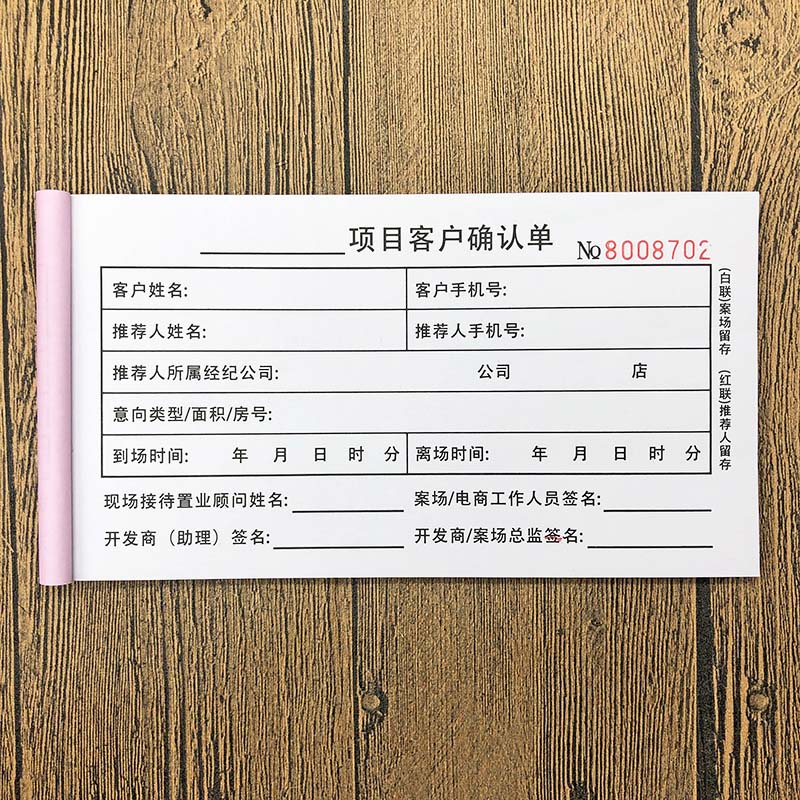 项目客户确认单 № 8008702
客户姓名: 客户手机号:
推荐人姓名: 推荐人手机号:
推荐人所属经纪公司: 公司 店
意向类型/面积/房号:
到场时间: 年 月 日 时 分 离场时间: 年 月 日 时 分
现场接待置业顾问姓名: 案场/电商工作人员签名:
开发商（助理）签名: 开发商/案场总监签名:
(白联)案场留存 (红联)推荐人留存